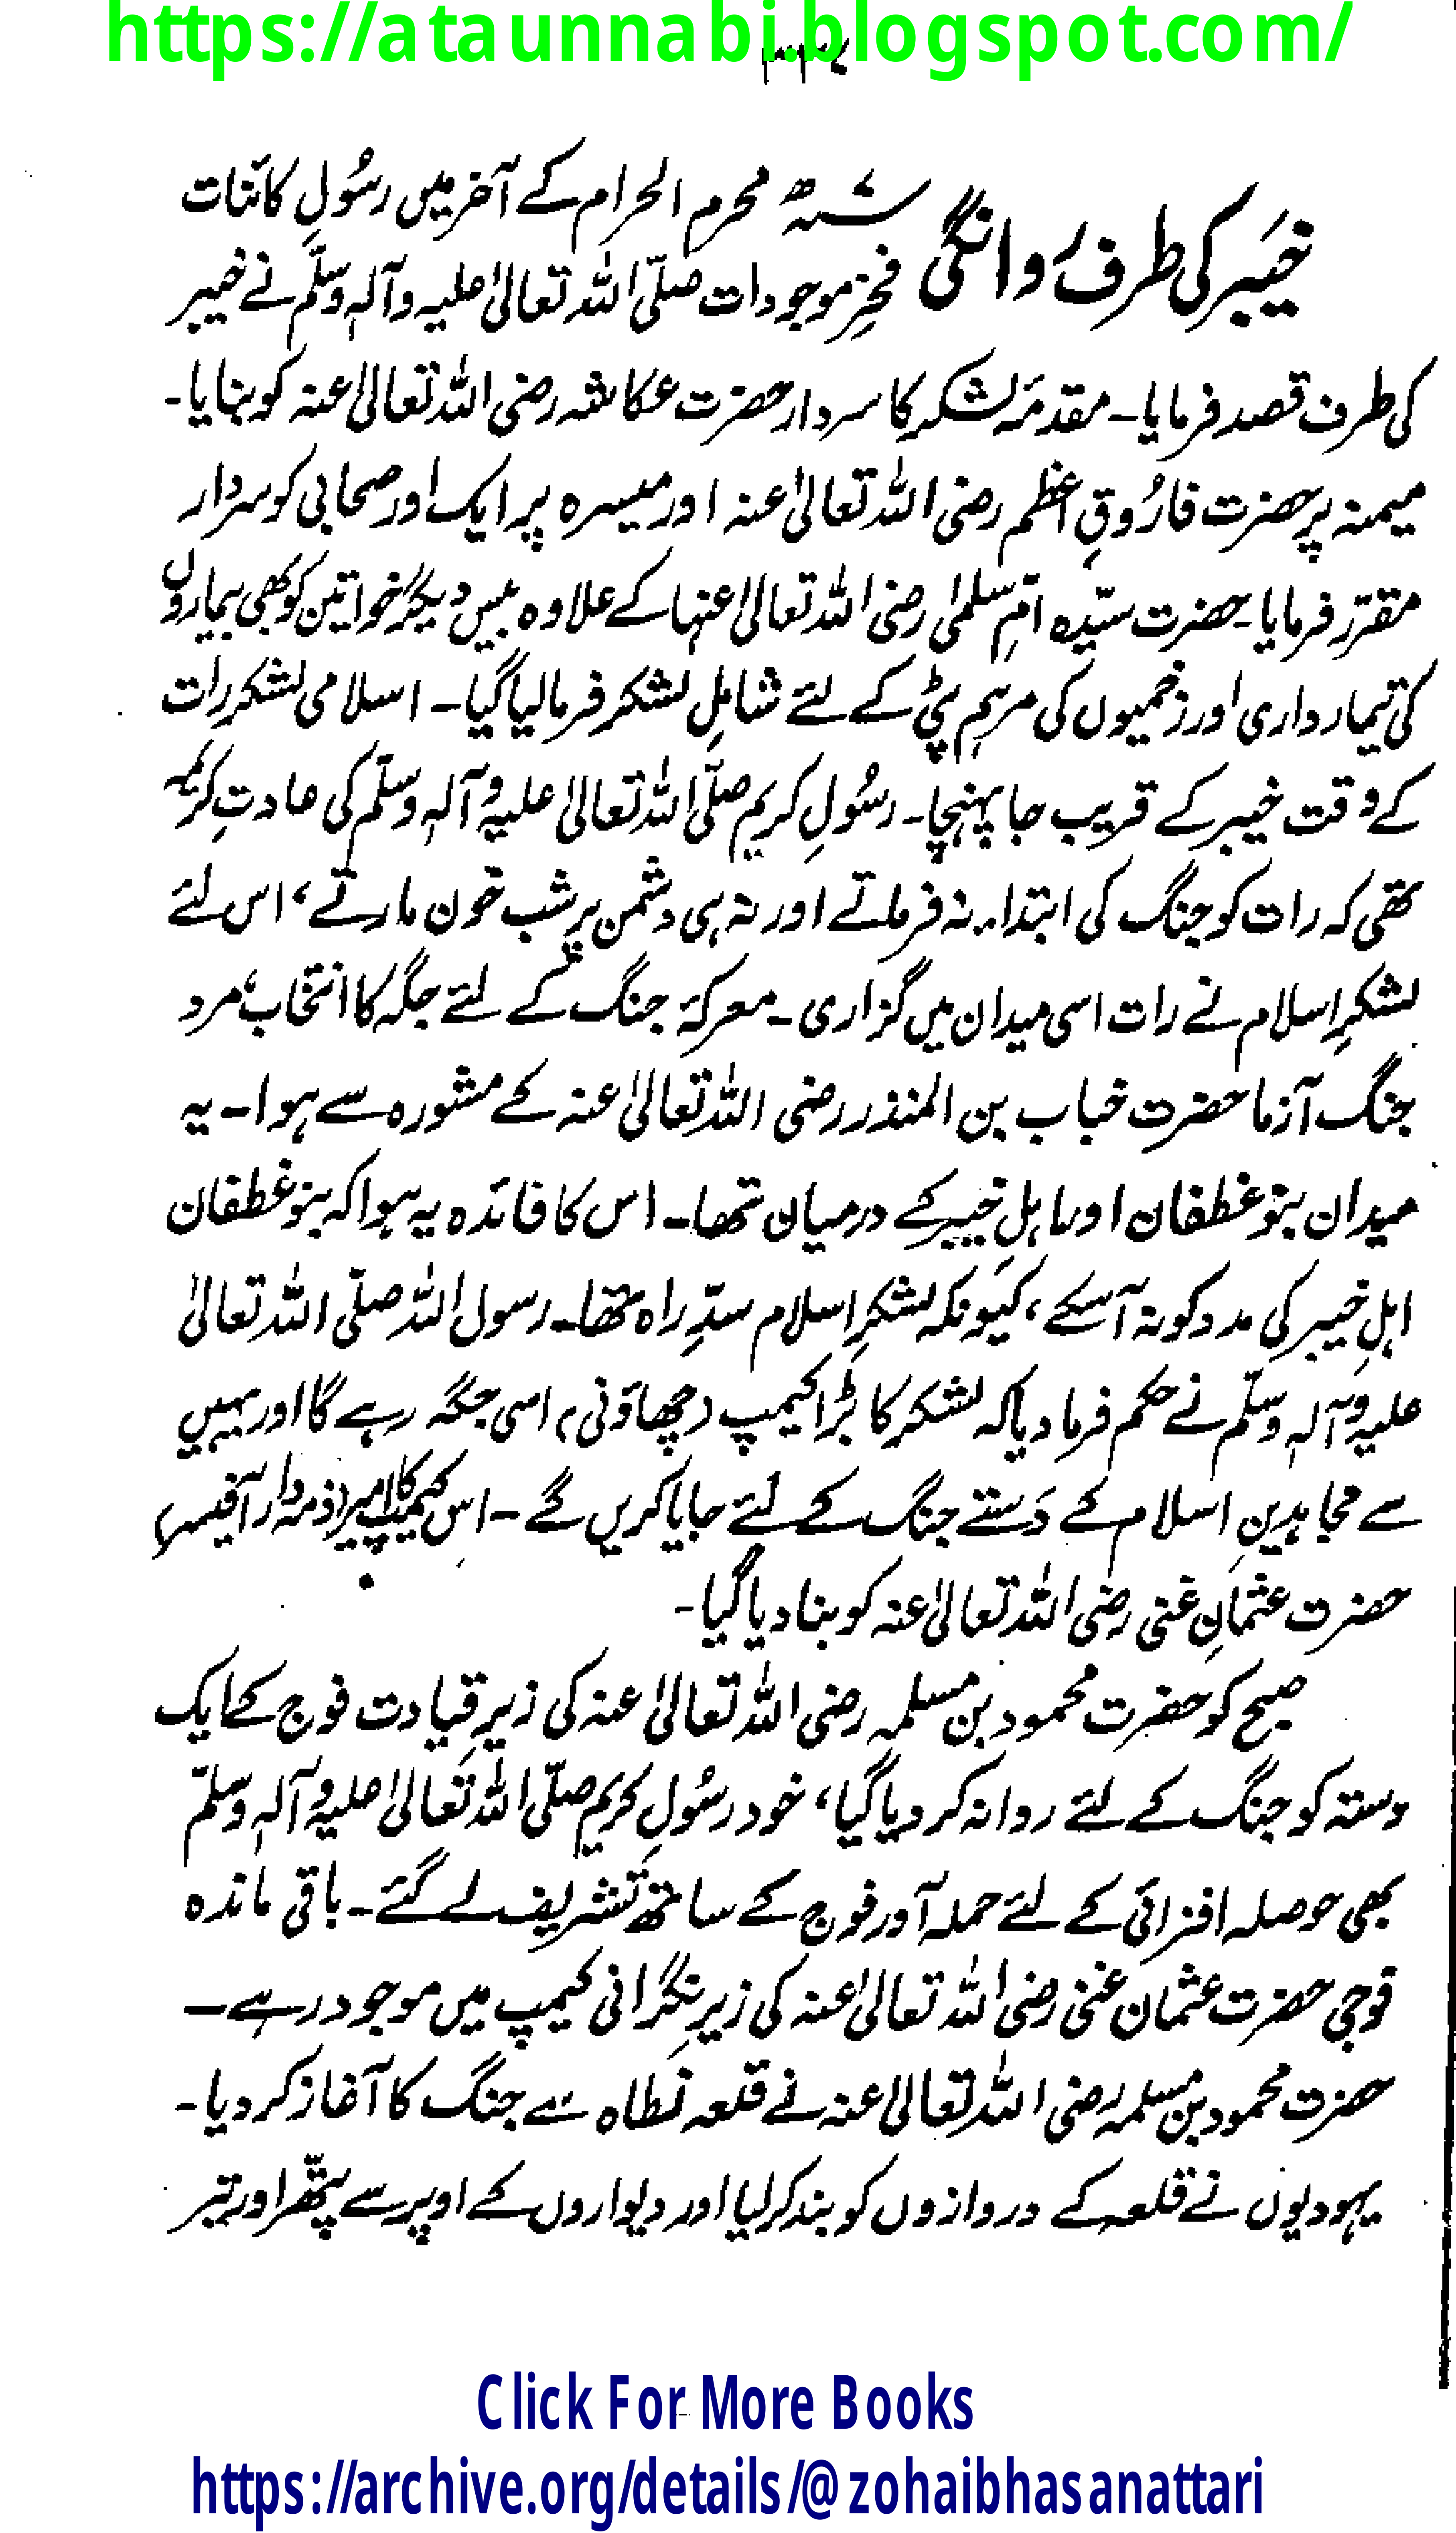 https://ataunnabi.blogspot.com/
خیبر کی طرف روانگی ۷ھ محرم الحرام کے آخر میں رسُولِ کائنات
فخرِ موجودات صلّی اللہ تعالیٰ علیہ وآلہٖ وسلّم نے خیبر
کی طرف قصد فرمایا۔ مقدمۂ لشکر کا سردار حضرت عکاشہ رضی اللہ تعالیٰ عنہ کو بنایا۔
میمنہ پر حضرت فارُوقِ اعظم رضی اللہ تعالیٰ عنہ اور میسرہ پر ایک اور صحابی کو سردار
مقرّر فرمایا۔ حضرت سیّدہ امِّ سلمیٰ رضی اللہ تعالیٰ عنہا کے علاوہ بیس دیگر خواتین کو بھی بیماروں
کی تیمارداری اور زخمیوں کی مرہم پٹی کے لئے شاملِ لشکر فرما لیا گیا۔ اسلامی لشکر رات
کے وقت خیبر کے قریب جا پہنچا۔ رسُولِ کریم صلّی اللہ تعالیٰ علیہ وآلہٖ وسلّم کی عادتِ کریمہ
تھی کہ رات کو جنگ کی ابتداء نہ فرماتے اور نہ ہی دشمن پر شب خون مارتے، اس لئے
لشکرِ اسلام نے رات اسی میدان میں گزاری۔ معرکۂ جنگ کے لئے جگہ کا انتخاب مرد
جنگ آزما حضرت خباب بن المنذر رضی اللہ تعالیٰ عنہ کے مشورہ سے ہوا۔ یہ
میدان بنو غطفان اور اہلِ خیبر کے درمیان تھا۔ اس کا فائدہ یہ ہوا کہ بنو غطفان
اہلِ خیبر کی مدد کو نہ آسکے، کیونکہ لشکرِ اسلام سدِّ راہ تھا۔ رسول اللہ صلّی اللہ تعالیٰ
علیہ وآلہٖ وسلّم نے حکم فرما دیا کہ لشکر کا بڑا کیمپ (چھاؤنی) اسی جگہ رہے گا اور یہیں
سے مجاہدینِ اسلام کے دَستے جنگ کے لئے جایا کریں گے ۔ اِس کیمپ کا امیر (ذمہ دار آفیسر)
حضرت عثمانِ غنی رضی اللہ تعالیٰ عنہ کو بنا دیا گیا۔
صبح کو حضرت محمود بن مسلمہ رضی اللہ تعالیٰ عنہ کی زیرِ قیادت فوج کے ایک
دستہ کو جنگ کے لئے روانہ کر دیا گیا، خود رسُولِ کریم صلّی اللہ تعالیٰ علیہ وآلہٖ وسلّم
بھی حوصلہ افزائی کے لئے حملہ آور فوج کے ساتھ تشریف لے گئے۔ باقی ماندہ
فوجی حضرت عثمان غنی رضی اللہ تعالیٰ عنہ کی زیرِ نگرانی کیمپ میں موجود رہے ۔
حضرت محمود بن مسلمہ رضی اللہ تعالیٰ عنہ نے قلعہ نطاہ سے جنگ کا آغاز کر دیا۔
یہودیوں نے قلعہ کے دروازوں کو بند کر لیا اور دیواروں کے اوپر سے پتّھر اور تیر
Click For More Books
https://archive.org/details/@zohaibhasanattari